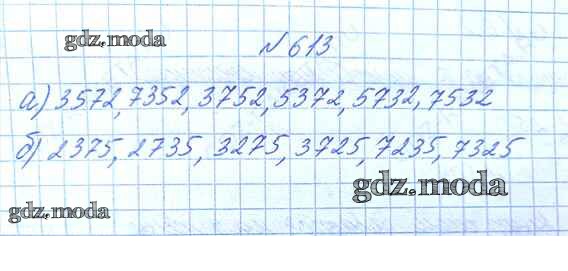 gdz.moda
№613
а) 3572, 7352, 3752, 5372, 5732, 7532
б) 2375, 2735, 3275, 3725, 7235, 7325
gdz.moda
gdz.moda